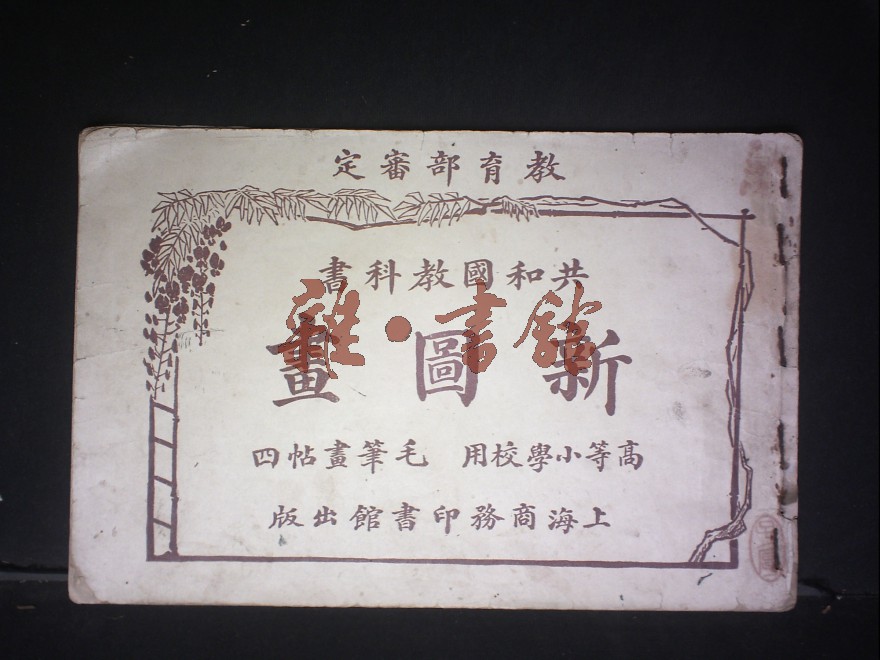 教育部審定
共和國教科書
雜·書館
新圖畫
高等小學校用 毛筆畫帖四
上海商務印書館出版